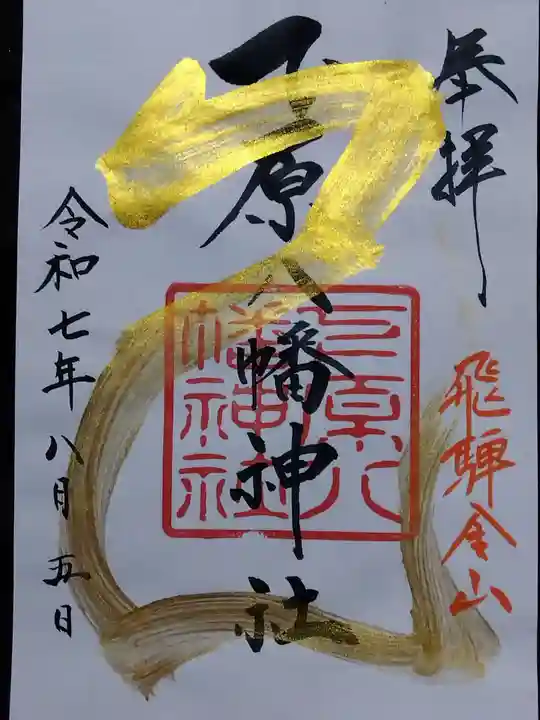 奉拝
飛騨金山
下原八幡神社
下原八
幡神社
令和七年八月五日